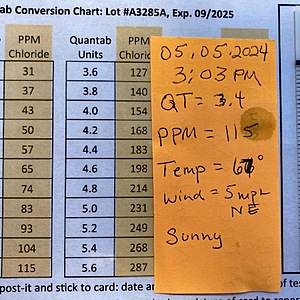 ab Conversion Chart: Lot #A3285A, Exp. 09/2025
PPM Chloride Quantab Units PPM Chloride
31 3.6 127
37 3.8 140
43 4.0 154
50 4.2 168
57 4.4 183
65 4.6 198
74 4.8 214
83 5.0 231
93 5.2 249
104 5.4 268
115 5.6 287
05.05.2024
3:03 PM
QT = 3.4
PPM = 115
Temp = 67°
wind = 5mph
NE
Sunny
post-it and stick to card: date an
of tes